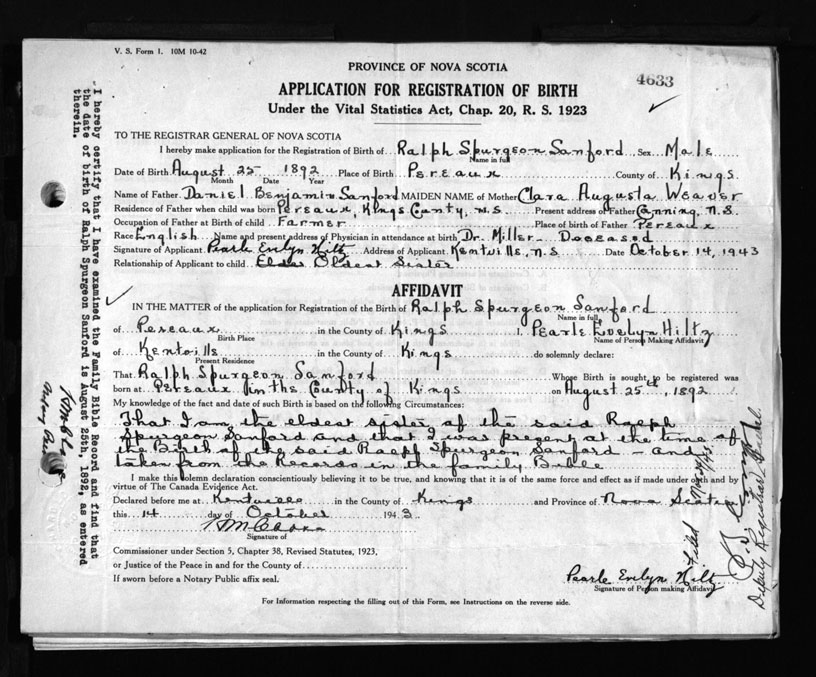 V. S. Form 1. 10M 10-42
PROVINCE OF NOVA SCOTIA
4633
APPLICATION FOR REGISTRATION OF BIRTH
Under the Vital Statistics Act, Chap. 20, R. S. 1923
TO THE REGISTRAR GENERAL OF NOVA SCOTIA
I hereby make application for the Registration of Birth of Ralph Spurgeon Sanford Sex Male
Name in full
Date of Birth August 25 1892 Place of Birth Pereaux County of Kings
Month Date Year
Name of Father Daniel Benjamin Sanford MAIDEN NAME of Mother Clara Augusta Weaver
Residence of Father when child was born Pereaux, Kings County, N.S. Present address of Father Canning, N.S.
Occupation of Father at Birth of child Farmer Place of birth of Father Pereaux
Race English Name and present address of Physician in attendance at birth Dr. Miller - Deceased
Signature of Applicant Pearle Evelyn Hiltz Address of Applicant Kentville, N.S Date October 14, 1943
Relationship of Applicant to child Elder Oldest Sister
AFFIDAVIT
IN THE MATTER of the application for Registration of the Birth of Ralph Spurgeon Sanford
Name in full
of Pereaux in the County of Kings I, Pearle Evelyn Hiltz
Birth Place Name of Person Making Affidavit
of Kentville in the County of Kings do solemnly declare:
Present Residence
That Ralph Spurgeon Sanford Whose Birth is sought to be registered was
born at Pereaux in the County of Kings on August 25th, 1892
My knowledge of the fact and date of such Birth is based on the following Circumstances:
That I am the eldest sister of the said Ralph
Spurgeon Sanford and that I was present at the time of
the Birth of the said Ralph Spurgeon Sanford - and
taken from the Records in the family Bible
I make this solemn declaration conscientiously believing it to be true, and knowing that it is of the same force and effect as if made under oath and by
virtue of The Canada Evidence Act.
Declared before me at Kentville in the County of Kings and Province of Nova Scotia
this 14 day of October 1943
Signature of
Commissioner under Section 5, Chapter 38, Revised Statutes, 1923,
or Justice of the Peace in and for the County of
If sworn before a Notary Public affix seal.
Pearle Evelyn Hiltz
Signature of Person making Affidavit
For Information respecting the filling out of this Form, see Instructions on the reverse side.
I hereby certify that I have examined the Family Bible Record and find that
the date of birth of Ralph Spurgeon Sanford is August 25th, 1892, as entered
therein.
Filed
Deputy Registrar General.